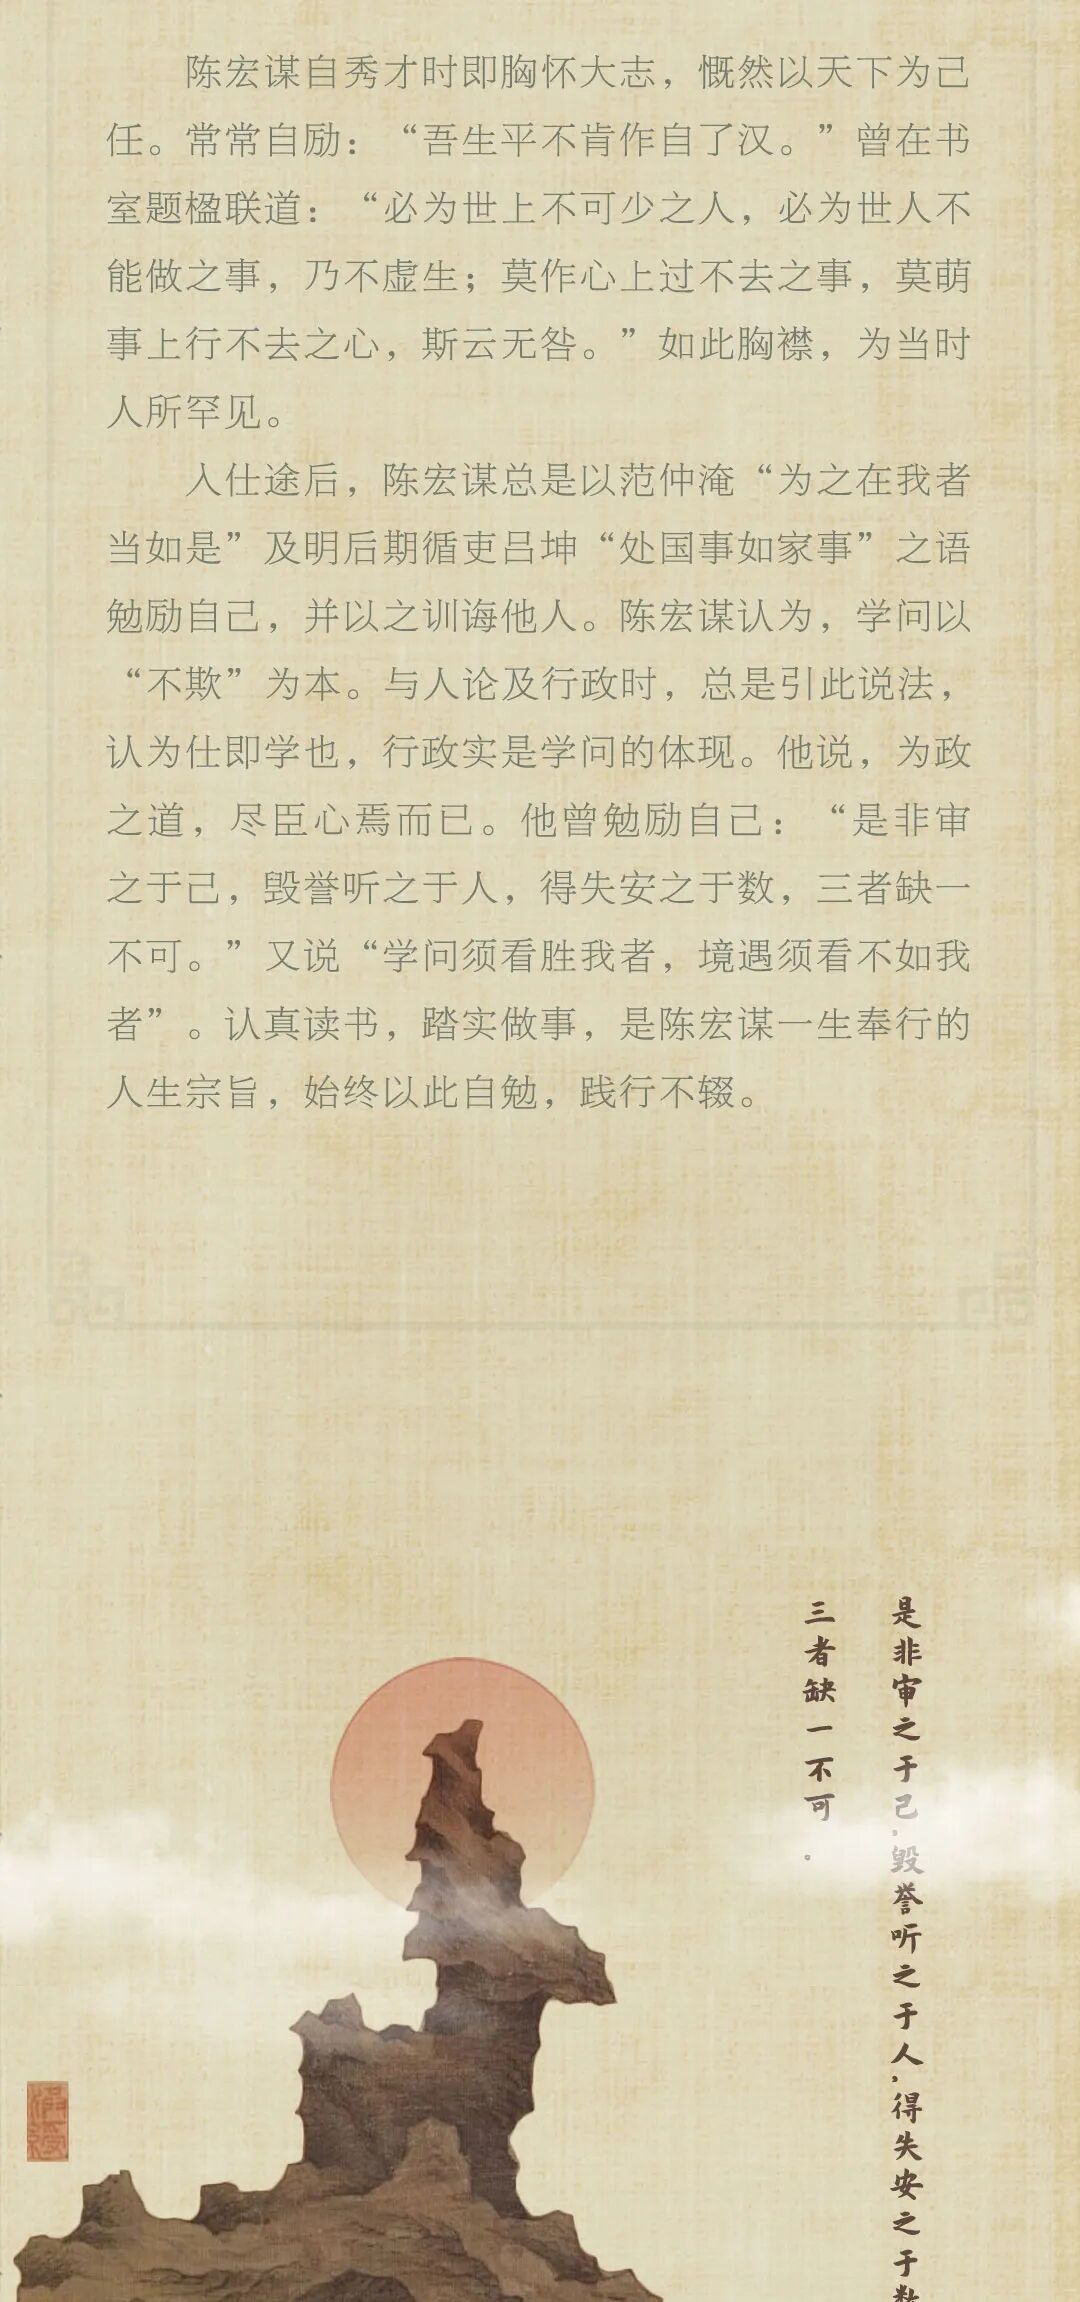 陈宏谋自秀才时即胸怀大志，慨然以天下为己
任。常常自励：“吾生平不肯作自了汉。”曾在书
室题楹联道：“必为世上不可少之人，必为世人不
能做之事，乃不虚生；莫作心上过不去之事，莫萌
事上行不去之心，斯云无咎。”如此胸襟，为当时
人所罕见。
入仕途后，陈宏谋总是以范仲淹“为之在我者
当如是”及明后期循吏吕坤“处国事如家事”之语
勉励自己，并以之训诲他人。陈宏谋认为，学问以
“不欺”为本。与人论及行政时，总是引此说法，
认为仕即学也，行政实是学问的体现。他说，为政
之道，尽臣心焉而已。他曾勉励自己：“是非审
之于己，毁誉听之于人，得失安之于数，三者缺一
不可。”又说“学问须看胜我者，境遇须看不如我
者”。认真读书，踏实做事，是陈宏谋一生奉行的
人生宗旨，始终以此自勉，践行不辍。
是非审之于己，毁誉听之于人，得失安之于数
三者缺一不可。